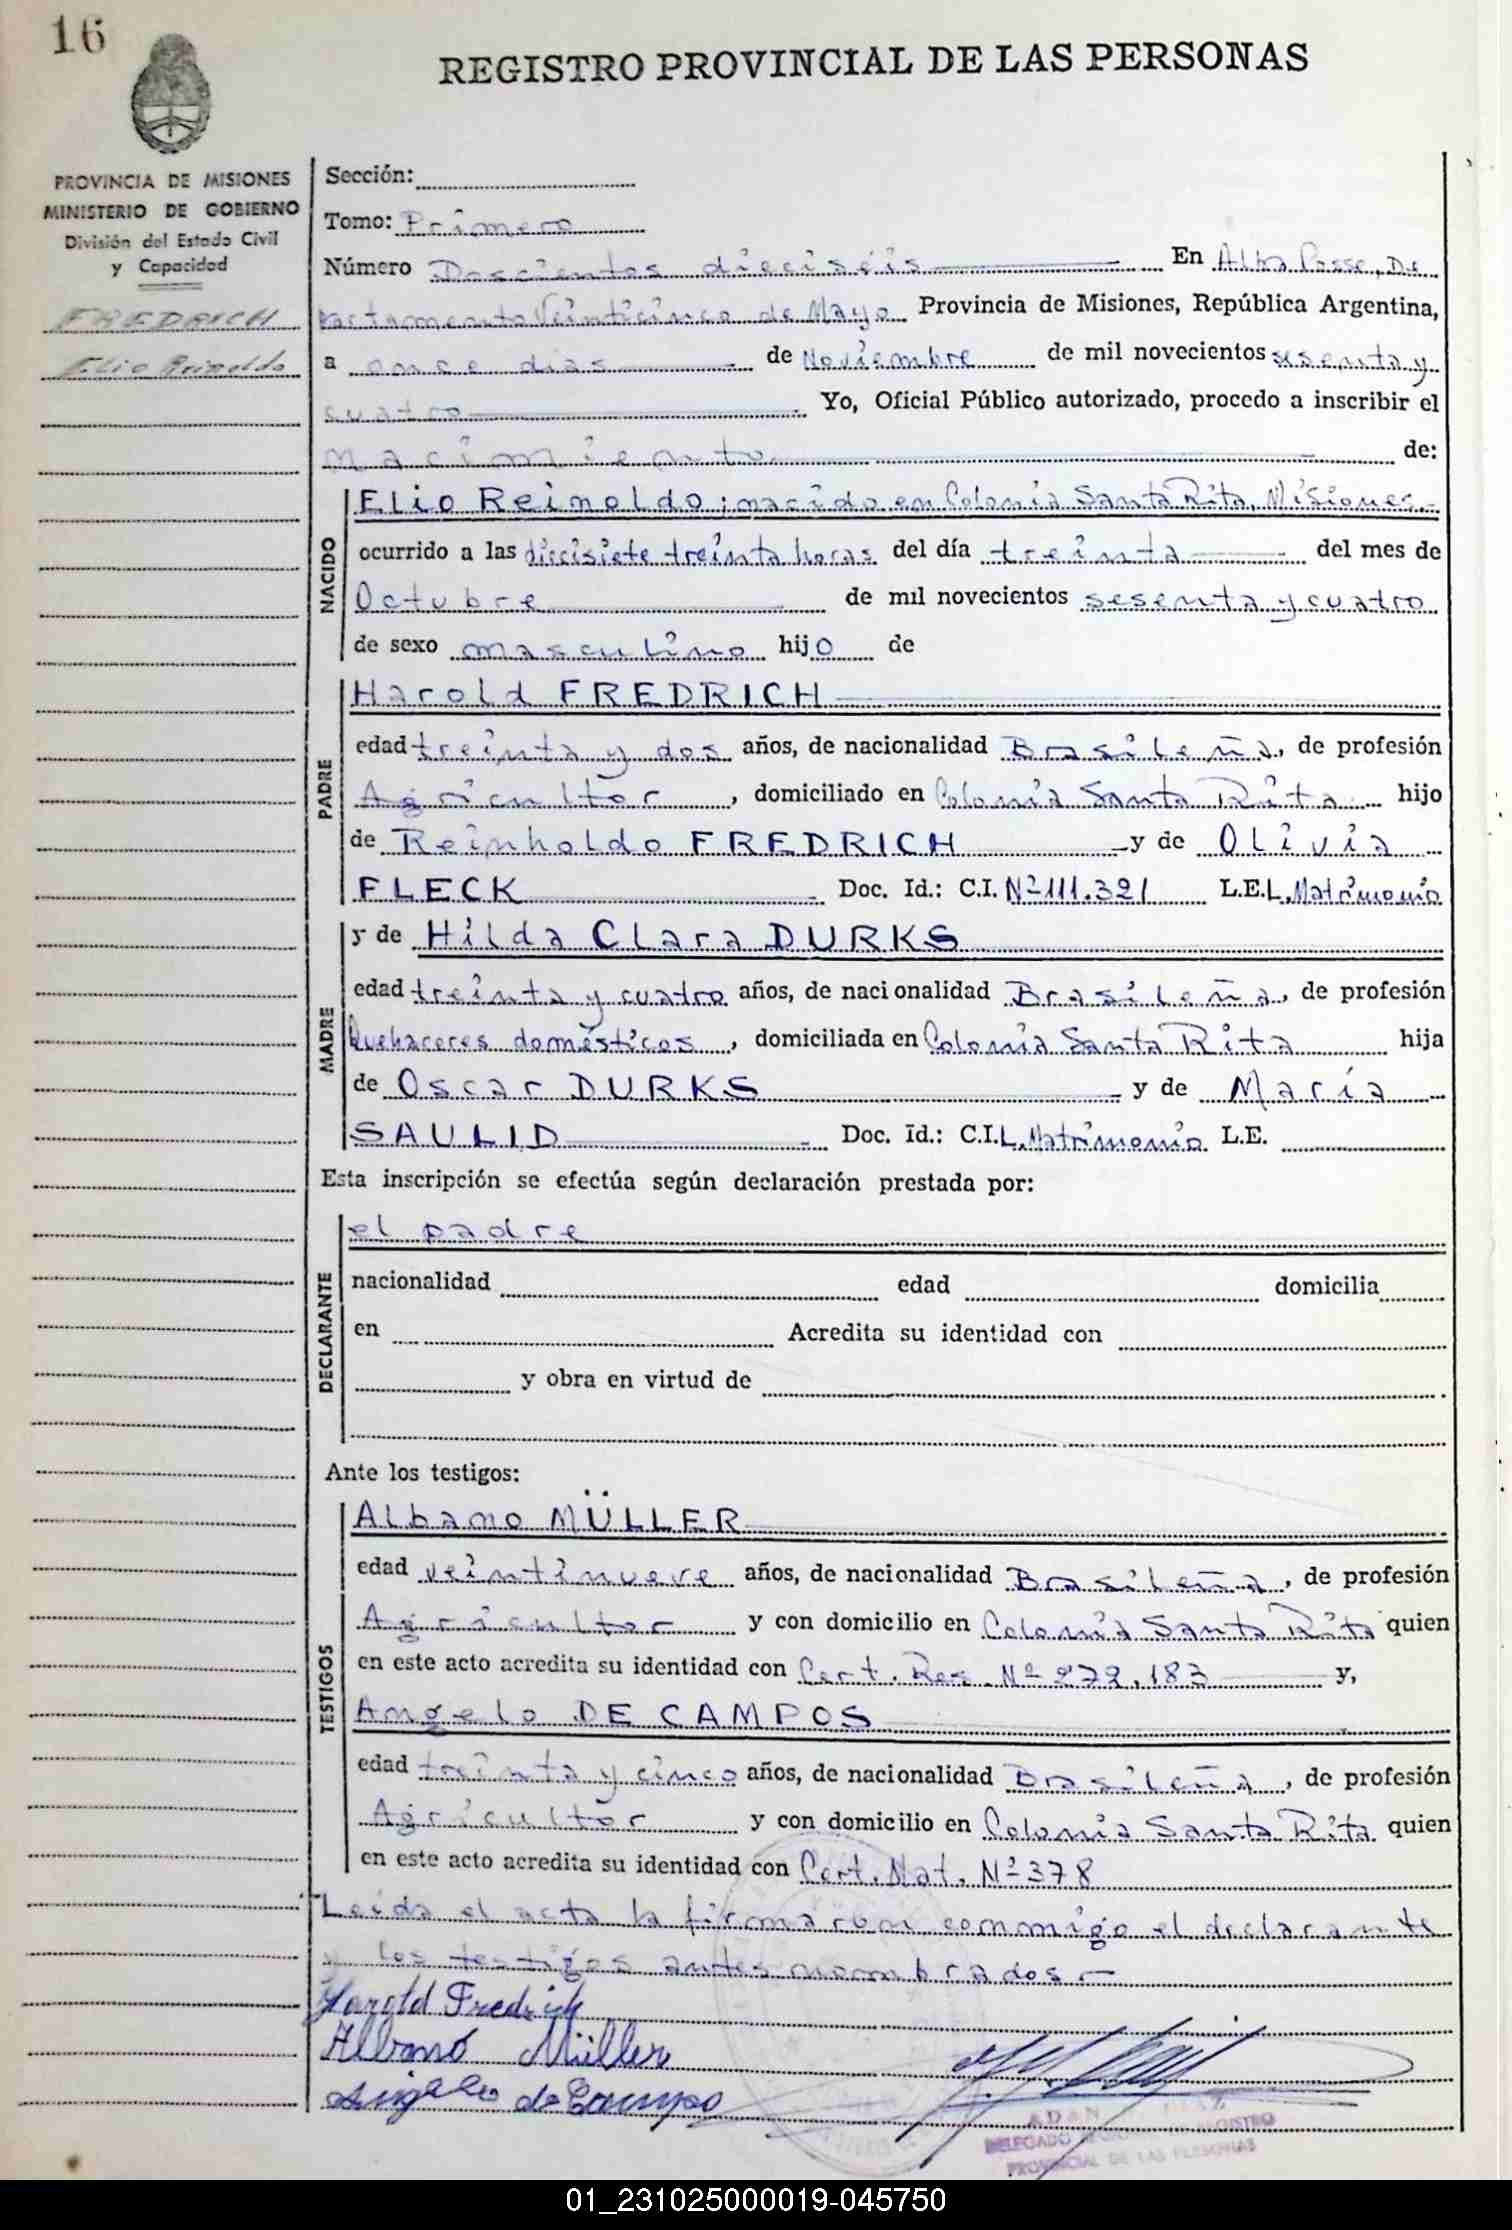 16
REGISTRO PROVINCIAL DE LAS PERSONAS
PROVINCIA DE MISIONES
MINISTERIO DE GOBIERNO
División del Estado Civil
y Capacidad
FREDRICH
Elio Reinoldo
Sección:
Tomo: Primero
Número Doscientos dieciséis En Alba Posse, De
partamento Veinticinco de Mayo Provincia de Misiones, República Argentina,
a once días de Noviembre de mil novecientos sesenta y
cuatro Yo, Oficial Público autorizado, procedo a inscribir el
nacimiento de:
NACIDO
Elio Reinoldo; nacido en Colonia Santa Rita, Misiones.-
ocurrido a las diecisiete treinta horas del día treinta del mes de
Octubre de mil novecientos sesenta y cuatro
de sexo masculino hijo de
PADRE
Harold FREDRICH
edad treinta y dos años, de nacionalidad Brasileña, de profesión
Agricultor, domiciliado en Colonia Santa Rita hijo
de Reinholdo FREDRICH y de Olivia
FLECK Doc. Id.: C.I. Nº 111.321 L.E. L. Matrimonio
MADRE
y de Hilda Clara DURKS
edad treinta y cuatro años, de nacionalidad Brasileña, de profesión
Quehaceres domésticos, domiciliada en Colonia Santa Rita hija
de Oscar DURKS y de María
SAULID Doc. Id.: C.I. L. Matrimonio L.E.
Esta inscripción se efectúa según declaración prestada por:
DECLARANTE
el padre
nacionalidad edad domicilia
en Acredita su identidad con
y obra en virtud de
Ante los testigos:
TESTIGOS
Albano MÜLLER
edad veintinueve años, de nacionalidad Brasileña, de profesión
Agricultor y con domicilio en Colonia Santa Rita quien
en este acto acredita su identidad con Cert. Res. Nº 272.183 y,
Angelo DE CAMPOS
edad treinta y cinco años, de nacionalidad Brasileña, de profesión
Agricultor y con domicilio en Colonia Santa Rita quien
en este acto acredita su identidad con Cert. Nat. Nº 378
Leída el acta la firmaron conmigo el declarante
y los testigos antes nombrados.-
Harold Fredrich
Albano Müller
Angelo de Campo
ADAN DIAZ
DELEGADO REGISTRO
PROVINCIAL DE LAS PERSONAS
01_231025000019-045750